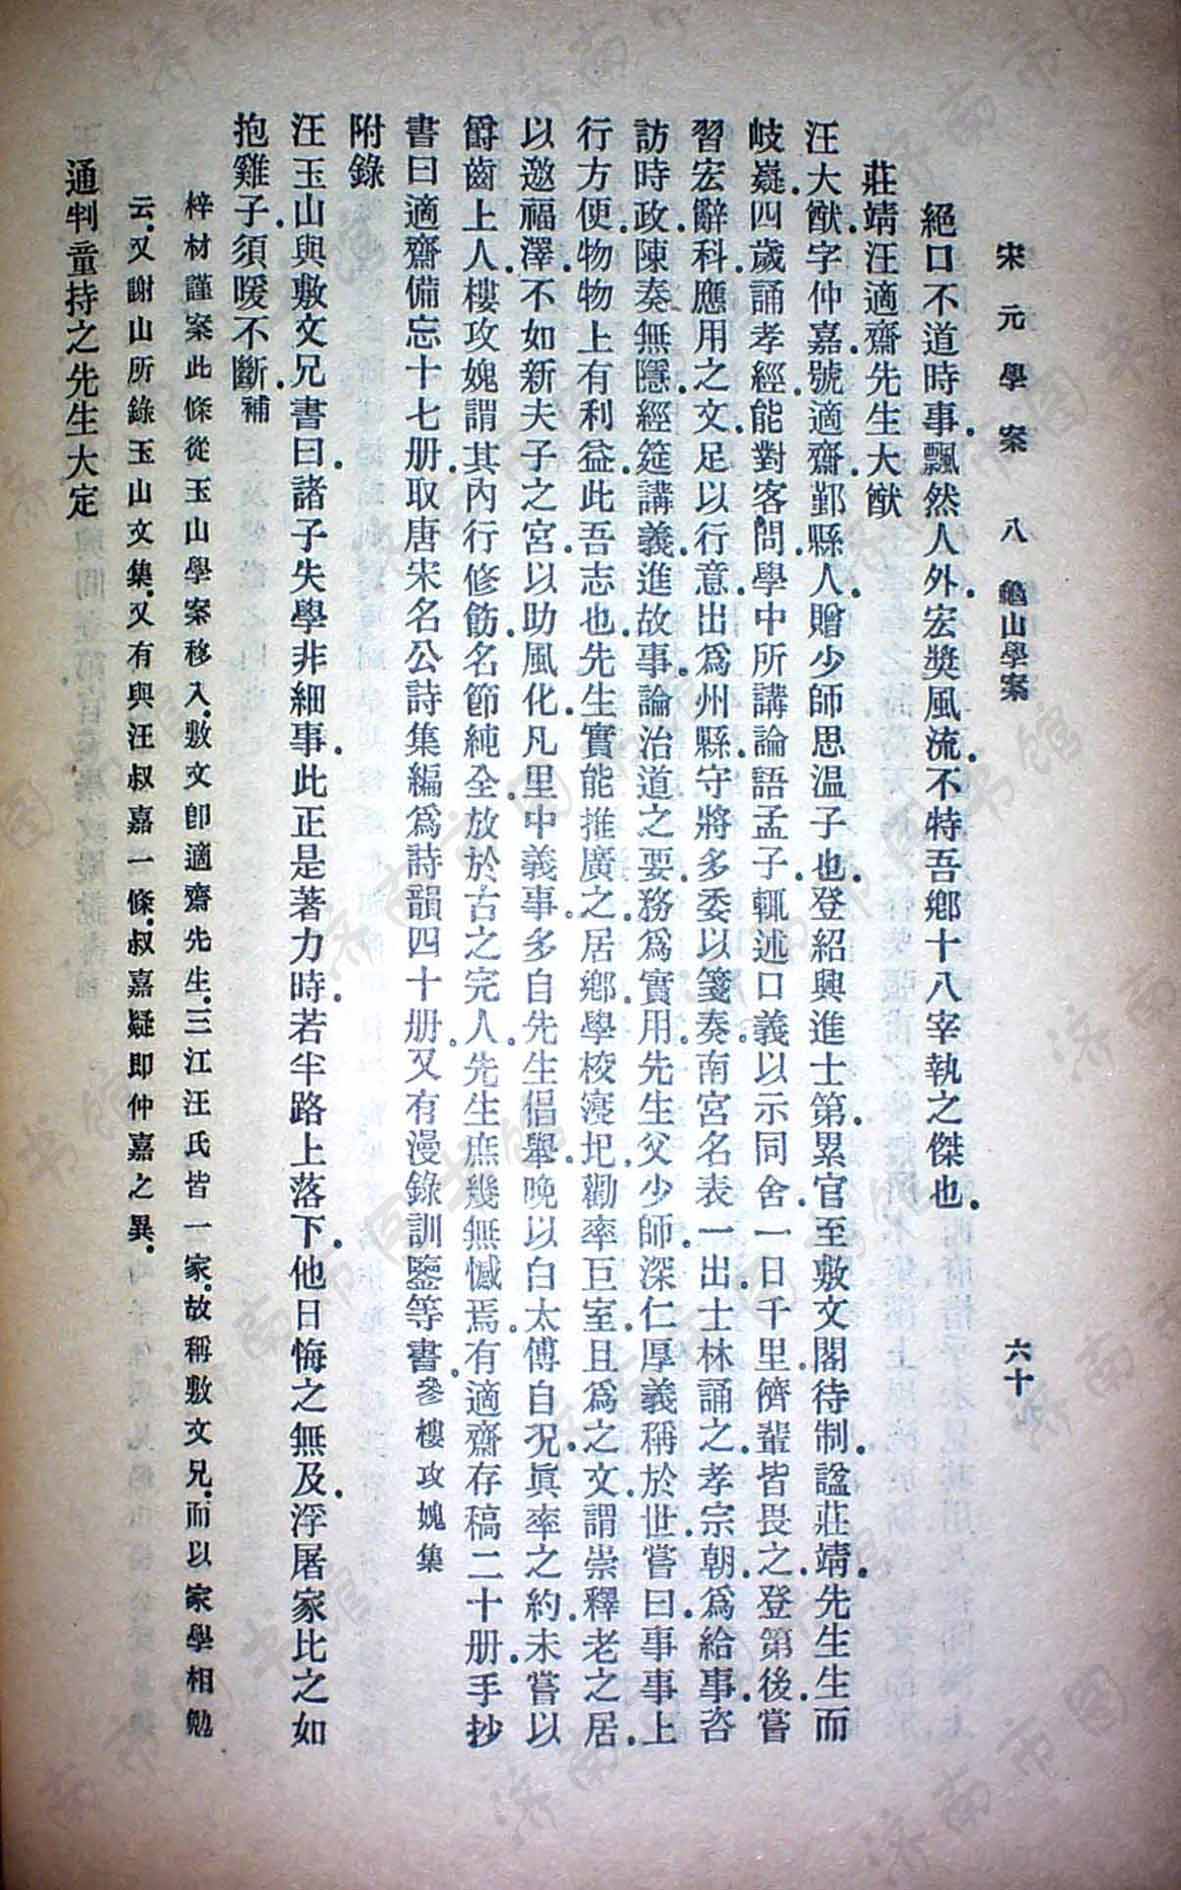 宋元學案 八 龜山學案 六十
絕口不道時事.飄然人外.宏獎風流.不特吾鄉十八宰執之傑也.
莊靖汪適齋先生大猷
汪大猷字仲嘉.號適齋.鄞縣人.贈少師思溫子也.登紹興進士第.累官至敷文閣待制.諡莊靖.先生生而
岐嶷.四歲誦孝經.能對客問.學中所講論語孟子.輒述口義以示同舍.一日千里.儕輩皆畏之.登第後.嘗
習宏辭科.應用之文.足以行意.出爲州縣.守將多委以箋奏.南宮名表一出.士林誦之.孝宗朝.爲給事.咨
訪時政.陳奏無隱.經筵講義.進故事.論治道之要.務爲實用.先生父少師.深仁厚義稱於世.嘗曰.事事上
行方便.物物上有利益.此吾志也.先生實能推廣之.居鄉.學校寖圯.勸率巨室.且爲之文.謂崇釋老之居.
以邀福澤.不如新夫子之宮.以助風化.凡里中義事.多自先生倡舉.晚以白太傅自況.眞率之約.未嘗以
爵齒上人.樓攻媿謂其內行修飭.名節純全.放於古之完人.先生庶幾無憾焉.有適齋存稿二十册.手抄
書曰適齋備忘十七册.取唐宋名公詩集編爲詩韻四十册.又有漫錄訓鑒等書.參樓攻媿集
附錄
汪玉山與敷文兄書曰.諸子失學非細事.此正是著力時.若半路上落下.他日悔之無及.浮屠家比之如
抱雞子.須暖不斷.補
梓材謹案此條從玉山學案移入.敷文卽適齋先生.三江汪氏皆一家.故稱敷文兄.而以家學相勉
云.又謝山所錄玉山文集.又有與汪叔嘉一條.叔嘉疑即仲嘉之異.
通判童持之先生大定